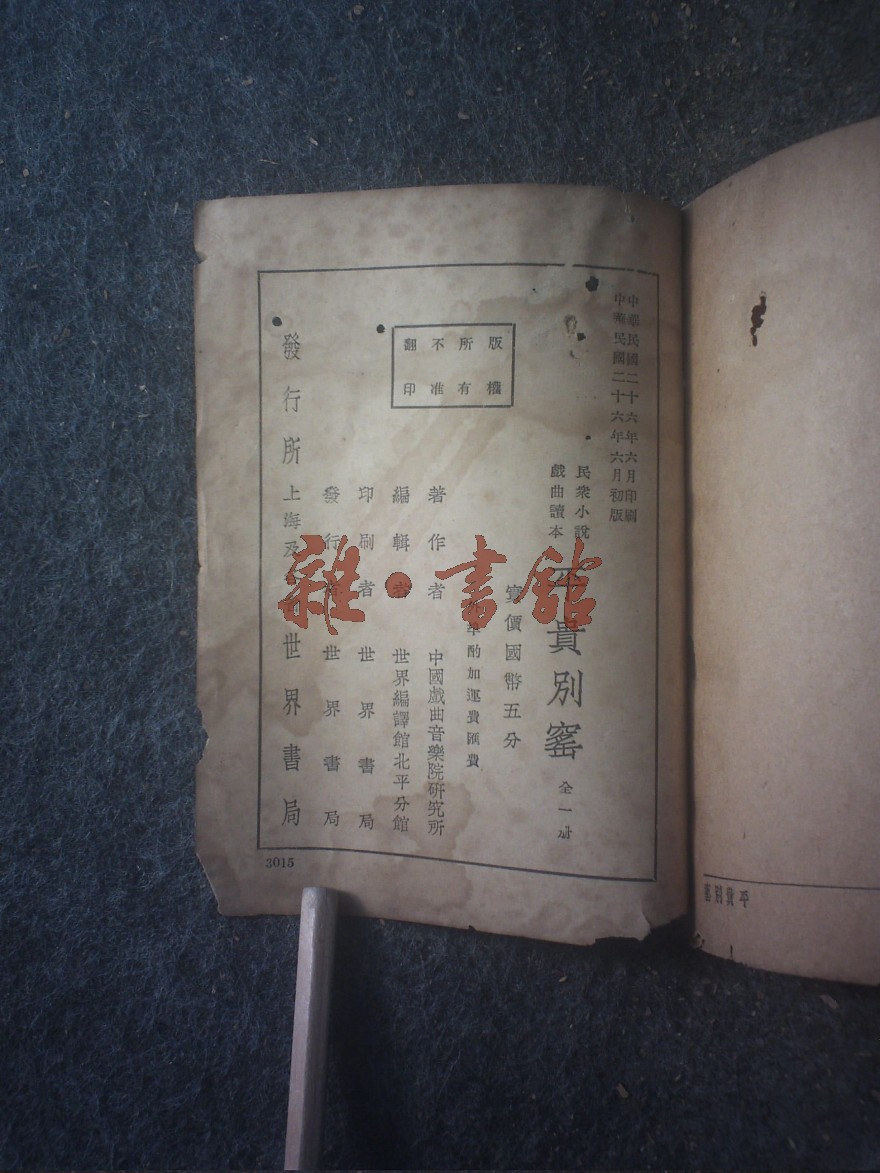 中華民國二十六年六月印刷
中華民國二十六年六月初版
民衆小說
戲曲讀本
平貴別窰 全一册
實價國幣五分
埠酌加運費匯費
著作者 中國戲曲音樂院研究所
編輯者 世界編譯館北平分館
印刷者 世界書局
發行者 世界書局
發行所 上海及 世界書局
版權
所有
不准
翻印
3015
平貴別窰
雜·書館